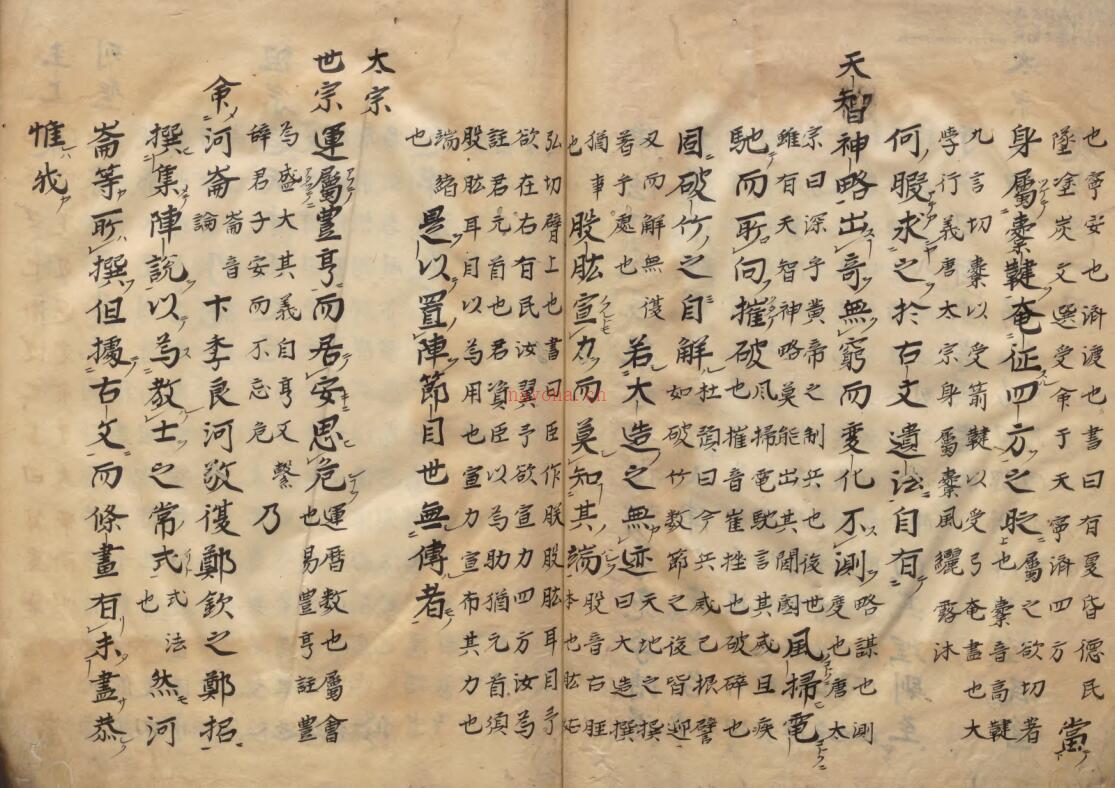 也寧安也濟渡也書曰有夏昏德民
墜塗炭文選受命于天寧濟四方
當
身屬櫜鞬奄征四方之時
屬之欲切著
也櫜音高鞬
九言切櫜以受箭鞬以受弓奄盡也大
學行義唐太宗身屬櫜鞬風纚露沐
何暇求之於古文遺法自有
天智神略出奇無窮而變化不測
略謀也測
度也唐太
宗曰深乎黃帝之制兵也後世
雖有天智神略莫能出其閫閾
風掃電
馳而所向摧破
風掃電馳言其威且疾
也摧音崔挫也破碎也
固破竹之自解
杜預曰今兵威已振譬
如破竹數節之後皆迎
刃而解無復
着手處也
若大造之無迹
天地之撰
曰大造撰
猶事
也
股肱宣力而莫知其端
股音古脛
本也肱
弘切臂上也書曰臣作朕股肱耳目予
欲在右有民汝翼予欲宣力四方汝為
註君元首也君資臣以為助猶元首須
股肱耳目以為用也宣力宣布其力也
端緒
也
是以置陣節目世無傳者
太宗
世宗運屬豐亨而居安思危
運曆數也屬會
也易豐亨註豐
為盛大其義自亨又繫
辭君子安而不忘危
乃
命河崙
崙音
論
卞季良河敬復鄭欽之鄭招
撰集陣說以為教士之常式
式法
也
然河
崙等所撰但據古文而條畫有未盡恭
惟我